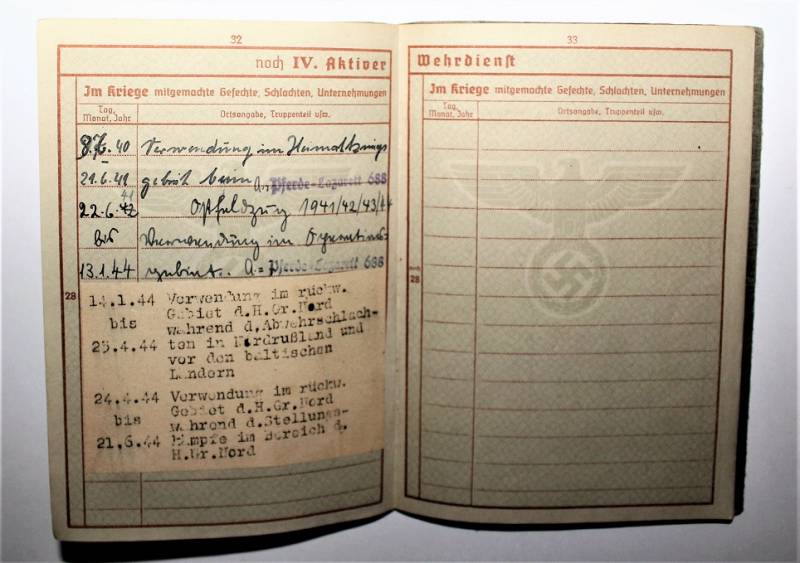 32
noch IV. Aktiver
Im Kriege mitgemachte Gefechte, Schlachten, Unternehmungen
Tag, Monat, Jahr
Ortsangabe, Truppenteil usw.
40 Verwendung im Heimatkriegs
21.6.41 gebiet beim A.= Pferde-Lazarett 688
41
22.6.42 Ostfeldzug 1941/42/43/44
bis Verwendung im Operations-
13.1.44 gebiet. A.= Pferde-Lazarett 688
28
14.1.44 Verwendung im rückw.
Gebiet d.H.Gr.Nord
bis während d.Abwehrschlach-
25.4.44 ten in Nordrußland und
vor den baltischen
Ländern
24.4.44 Verwendung im rückw.
Gebiet d.H.Gr.Nord
bis während d.Stellungs-
21.6.44 kämpfe im Bereich d.
H.Gr.Nord
33
Wehrdienst
Im Kriege mitgemachte Gefechte, Schlachten, Unternehmungen
Tag, Monat, Jahr
Ortsangabe, Truppenteil usw.
noch
28